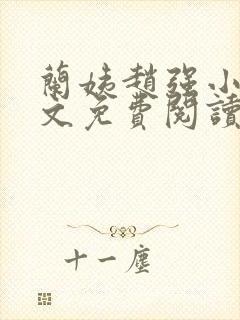 蘭姨趙強小
文免費閱讀
十一塵